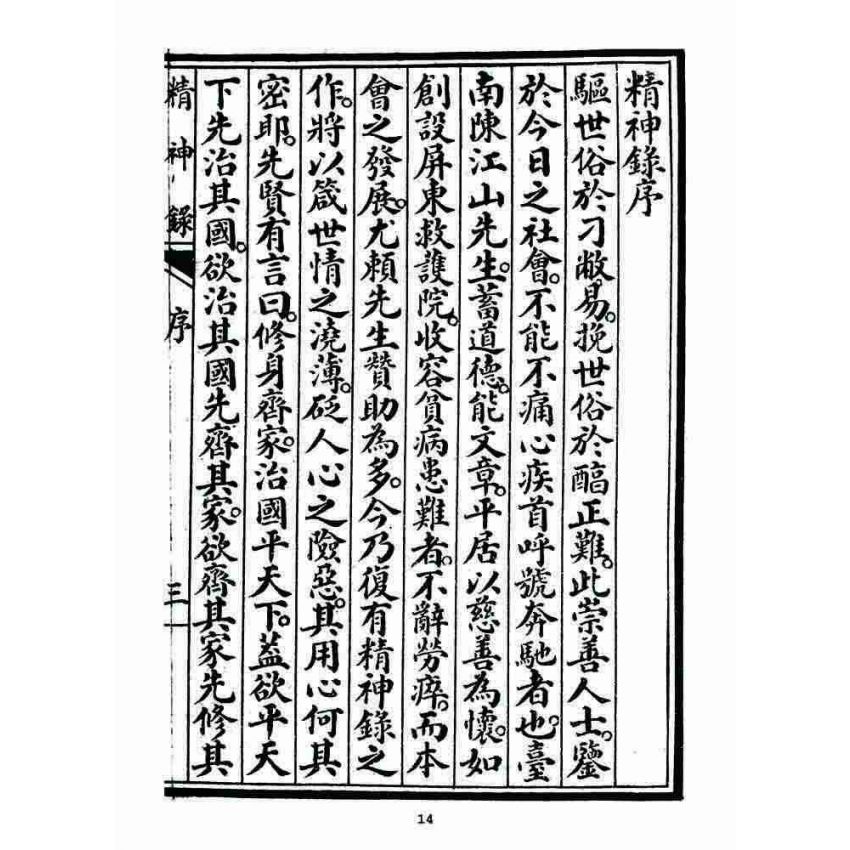 精神錄序
驅世俗於刁敝易。挽世俗於醕正難。此崇善人士。鑒
於今日之社會。不能不痛心疾首呼號奔馳者也。臺
南陳江山先生。蓄道德。能文章。平居以慈善為懷。如
創設屏東救護院。收容貧病患難者。不辭勞瘁。而本
會之發展。尤賴先生贊助為多。今乃復有精神錄之
作。將以箴世情之澆薄。砭人心之險惡。其用心何其
密耶。先賢有言曰。修身齊家。治國平天下。蓋欲平天
下先治其國。欲治其國先齊其家。欲齊其家先修其
精神錄 序 三
14